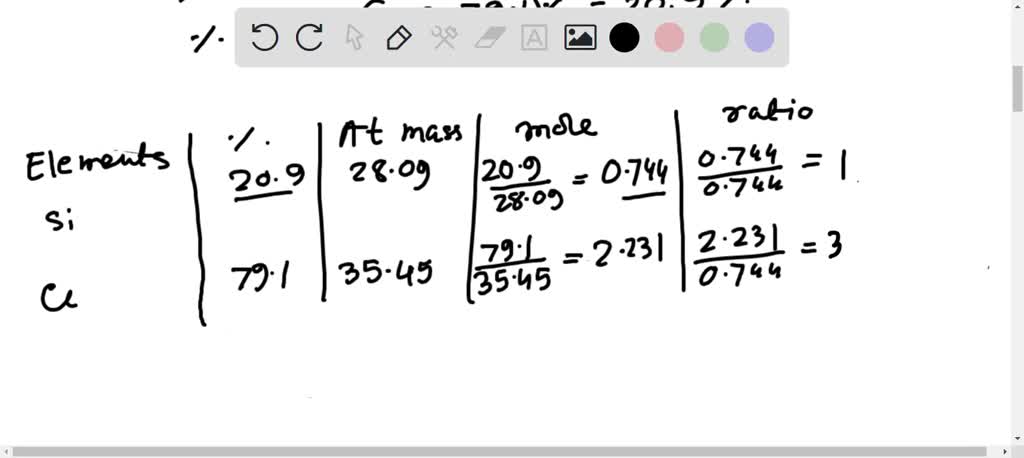 %.
Elements | %. | At mass | mole | ratio
Si | 20.9 | 28.09 | 20.9/28.09 = 0.744 | 0.744/0.744 = 1
Cl | 79.1 | 35.45 | 79.1/35.45 = 2.231 | 2.231/0.744 = 3